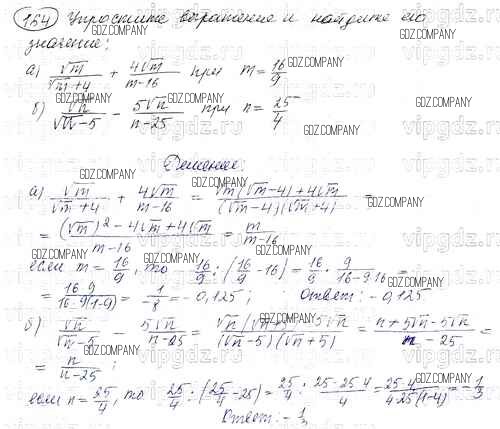 164 Упростите выражение и найдите его
значение:
а) √m/(√m+4) + 4√m/(m-16) при m = 16/9
б) √n/(√n-5) - 5√n/(n-25) при n = 25/4
Решение:
а) √m/(√m+4) + 4√m/(m-16) = (√m(√m-4)+4√m)/((√m-4)(√m+4)) =
= ((√m)²-4√m+4√m)/(m-16) = m/(m-16)
если m = 16/9, то 16/9 : (16/9 - 16) = 16/9 · 9/(16-9·16) =
= 16·9/(16·9(1-9)) = 1/8 = -0,125; Ответ: -0,125
б) √n/(√n-5) - 5√n/(n-25) = (√n(√n+5) - 5√n)/((√n-5)(√n+5)) = (n+5√n-5√n)/(n-25) =
= n/(n-25);
если n = 25/4, то 25/4 : (25/4 - 25) = 25/4 : (25-25·4)/4 = 25·4/(4·25(1-4)) = -1/3
Ответ: -1/3
GDZ.COMPANY
vipgdz.ru